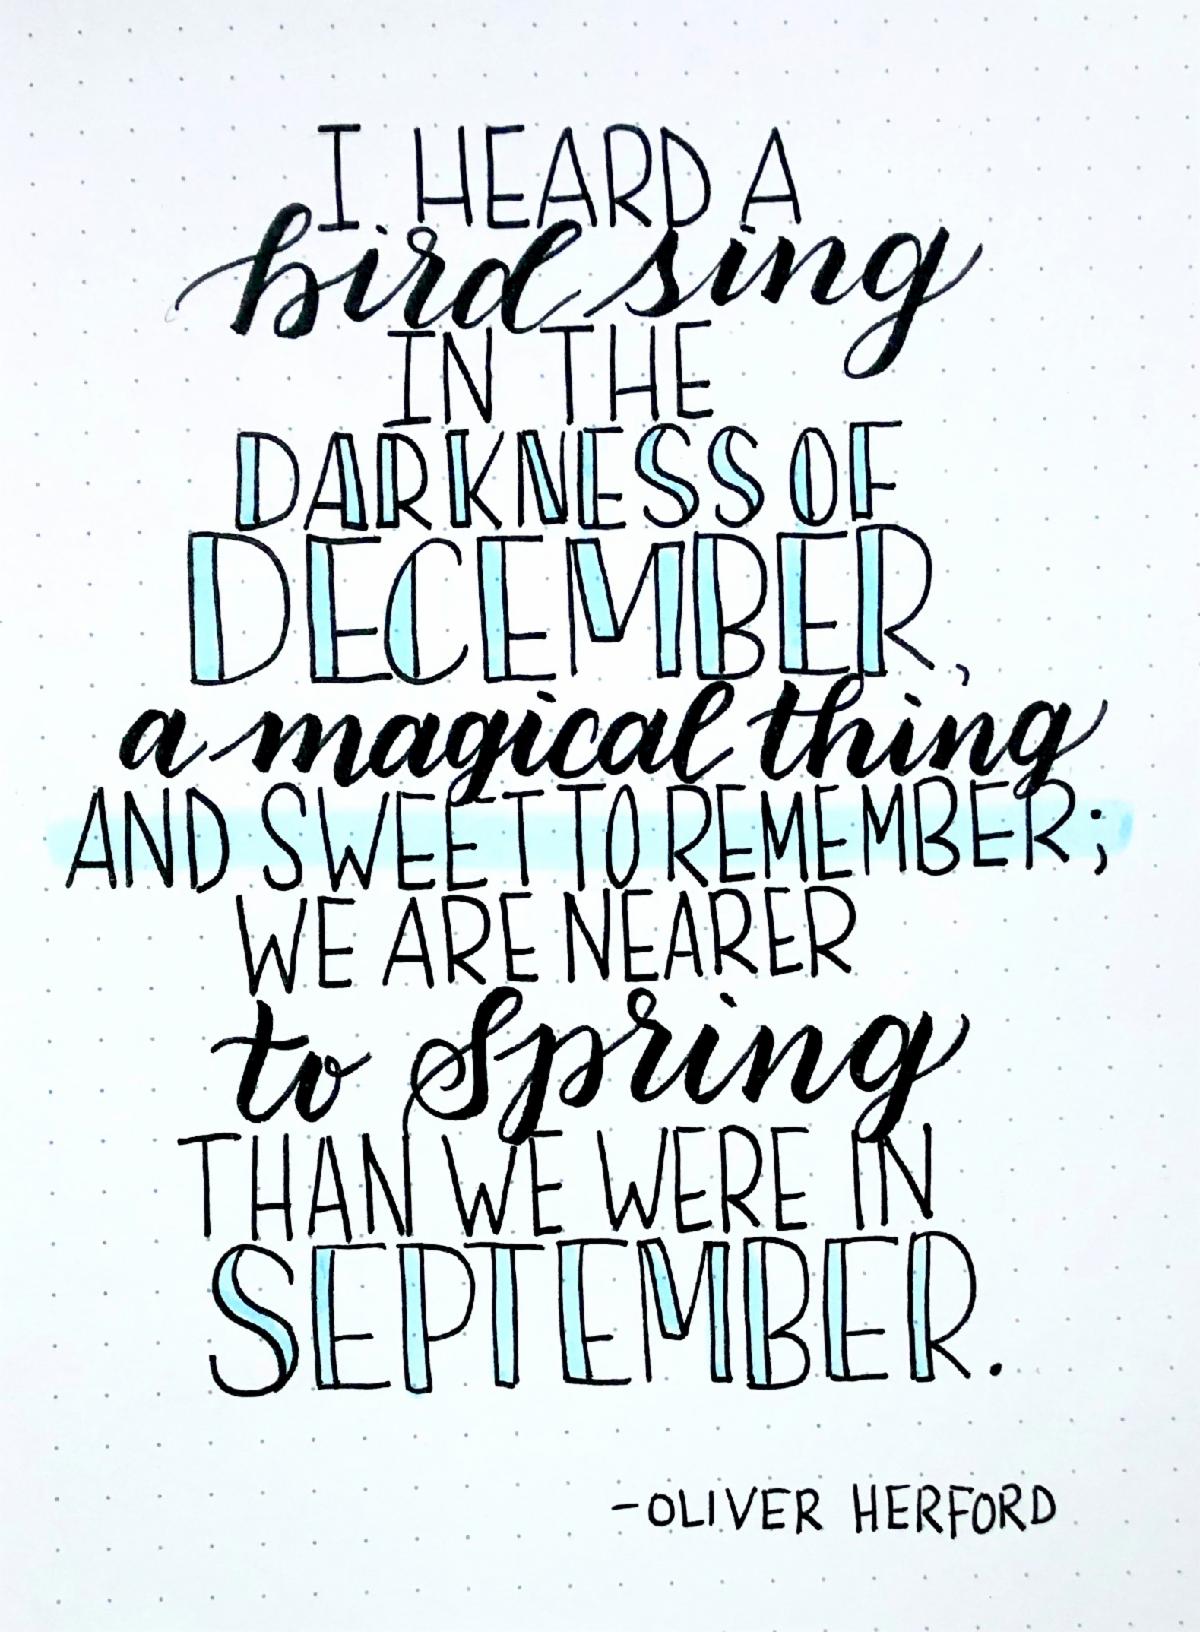 I HEARD A
bird sing
IN THE
DARKNESS OF
DECEMBER,
a magical thing
AND SWEET TO REMEMBER;
WE ARE NEARER
to Spring
THAN WE WERE IN
SEPTEMBER.
-OLIVER HERFORD